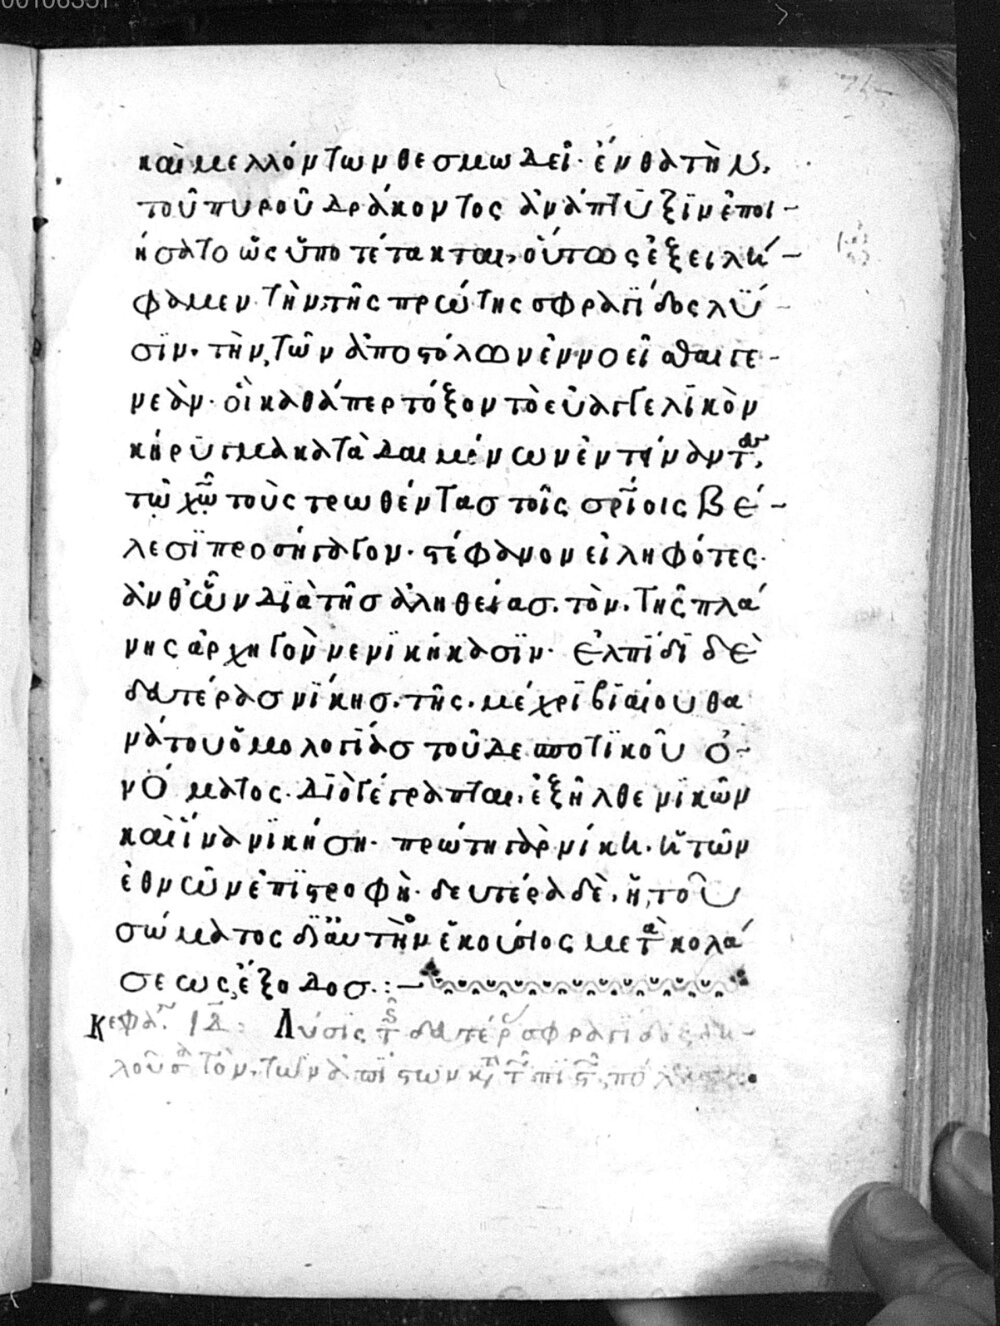 καὶ μελλόντων θεσμωδεῖ· ἐνθα τὴν,
τοῦ πυροῦ δράκοντος ἀνάπτυξϊν ἐποι-
ήσατο ὡς ὕποτέτακται, οὕτως ἐξειλή-
φαμεν τὴν τῆς πρώτης σφραγῖδος λΰ-
σϊν. τὴν, τῶν ἀποστόλων ἐννοεῖσθαι γε-
νεὰν· οἳ καθάπερ τόξον τὸ εὐαγγελϊκὸν
κήρϋγμα κατὰ δαιμόνων ἐντείναντ,
τῶ χῶ τοὺς τρωθέντασ τοῖς σρίοις βέ-
λεσϊ προσήγαγον· στέφανον εἰληφότες·
ἀνθῶν δϊὰ τῆσ ἀληθείασ. τὸν. τῆς πλά
νης ἀρχηγὸν νενϊκήκασϊν· ἐλπίδϊ δὲ
δευτέρασ νΐκησ. τῆς. μέχρϊ βϊαίου θα
νάτου ὁμολογΐασ τοῦ δεσποτϊκοῦ ὀ-
νόματος. δϊὸ γέγραπται. ἐξῆλθε νϊκῶν
καὶ ἵνα νϊκήση· πρώτη γὰρ νίκη. ἡ τῶν
ἐθνῶν ἐπϊστροφὴ· δευτέρα δὲ. ἡ, τοῦ
σώματος δϊ' αὐτὴν ἑκούσιος μετὰ κολά
σεως, ἔξοδοσ.:—
Κεφάλ. ιδ: Λύσϊς τ δευτέρ σφραγΐδος δη-
λοῦσ τὸν. τῶν ἀπΐστων κ τ πϊστ, πό